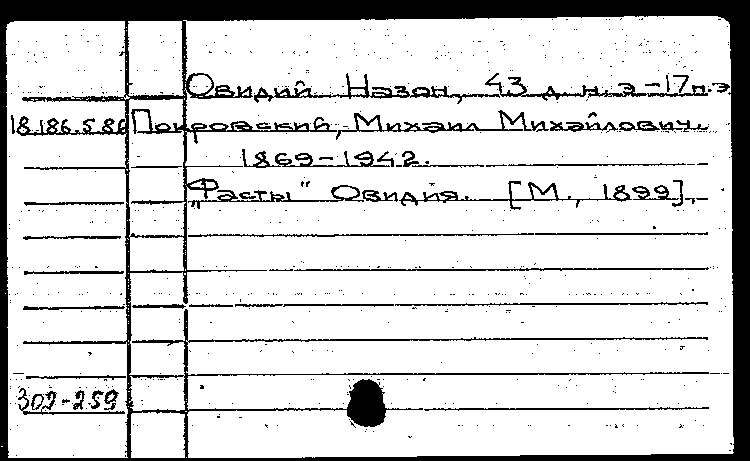 Овидий Назон, 43 д. н.э-17н.э
18.186.5.86 Покровский, Михаил Михайлович.
1869-1942.
„Фасты" Овидия. [М., 1899].
309-259